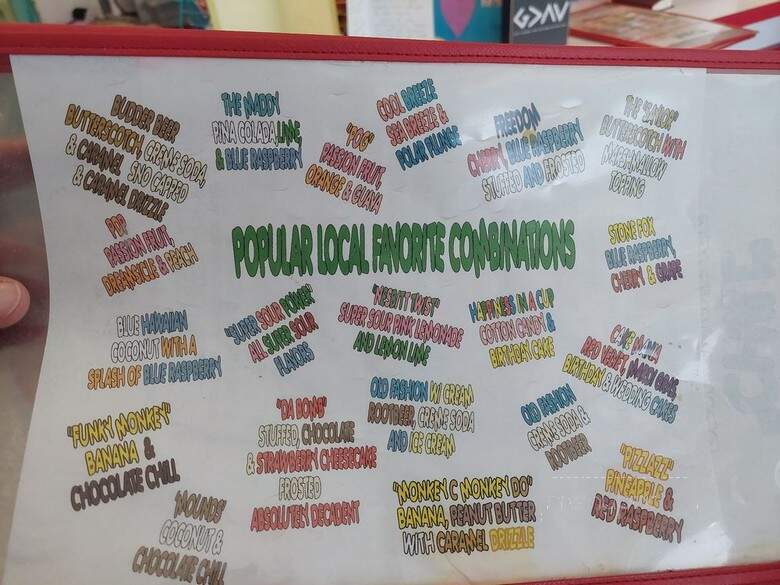 G>∧V
BUDDER BEER
BUTTERSCOTCH, CREME SODA,
& CARAMEL SNO CAPPED
& CARAMEL DRIZZLE
THE MADDY
PINA COLADA, LIME,
& BLUE RASPBERRY
"POG"
PASSION FRUIT,
ORANGE & GUAVA
COOL BREEZE
SEA BREEZE &
POLAR PLUNGE
FREEDOM
CHERRY, BLUE RASPBERRY
STUFFED AND FROSTED
BUTTERSCOTCH WITH
MARSHMALLOW
TOPPING
POPULAR LOCAL FAVORITE COMBINATIONS
POP
PASSION FRUIT,
DREAMSICLE & PEACH
STONE FOX
BLUE RASPBERRY,
CHERRY & GRAPE
BLUE HAWAIIAN
COCONUT WITH A
SPLASH OF BLUE RASPBERRY
"SUPER SOUR POWER"
ALL SUPER SOUR
FLAVORS
"NESBITT TWIST"
SUPER SOUR PINK LEMONADE
AND LEMON LIME
HAPPINESS IN A CUP
COTTON CANDY &
BIRTHDAY CAKE
CAKE MANIA
RED VELVET, MARDI GRAS,
BIRTHDAY & WEDDING CAKES
"FUNKY MONKEY"
BANANA &
CHOCOLATE CHILL
"DA BOMB"
STUFFED, CHOCOLATE
& STRAWBERRY CHEESECAKE
FROSTED
ABSOLUTELY DECADENT
OLD FASHION W/ CREAM
ROOTBEER, CREME SODA
AND ICE CREAM
OLD FASHION
CREME SODA &
ROOTBEER
"PIZZAZZ"
PINEAPPLE &
RED RASPBERRY
"MOUNDS"
COCONUT &
CHOCOLATE CHILL
"MONKEY C MONKEY DO"
BANANA, PEANUT BUTTER
WITH CARAMEL DRIZZLE